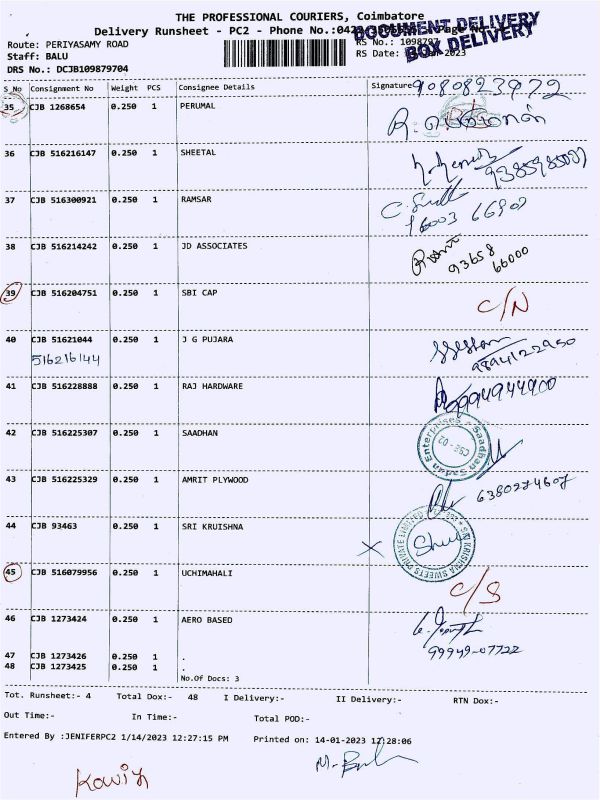 THE PROFESSIONAL COURIERS, Coimbatore
Delivery Runsheet - PC2 - Phone No.:0422
DOCUMENT DELIVERY
BOX DELIVERY
Route: PERIYASAMY ROAD
RS No.: 1098797
Staff: BALU
RS Date: 2023
DRS No.: DCJB109879704
S_No Consignment No Weight PCS Consignee Details Signature
9080823972
35 CJB 1268654 0.250 1 PERUMAL
36 CJB 516216147 0.250 1 SHEETAL
37 CJB 516300921 0.250 1 RAMSAR
38 CJB 516214242 0.250 1 JD ASSOCIATES
93658
66000
39 CJB 516204751 0.250 1 SBI CAP C/N
40 CJB 51621044 0.250 1 J G PUJARA
516216144 9894122950
41 CJB 516228888 0.250 1 RAJ HARDWARE
42 CJB 516225307 0.250 1 SAADHAN
Saadhan Sadan Enterprises
CBE - 02
43 CJB 516225329 0.250 1 AMRIT PLYWOOD
6380274607
44 CJB 93463 0.250 1 SRI KRUISHNA
SRI KRISHNA SWEETS PRIVATE LIMITED
X
45 CJB 516079956 0.250 1 UCHIMAHALI
C/S
46 CJB 1273424 0.250 1 AERO BASED
99949-07722
47 CJB 1273426 0.250 1 .
48 CJB 1273425 0.250 1 .
No.Of Docs: 3
Tot. Runsheet:- 4 Total Dox:- 48 I Delivery:- II Delivery:- RTN Dox:-
Out Time:- In Time:- Total POD:-
Entered By :JENIFERPC2 1/14/2023 12:27:15 PM Printed on: 14-01-2023 12:28:06